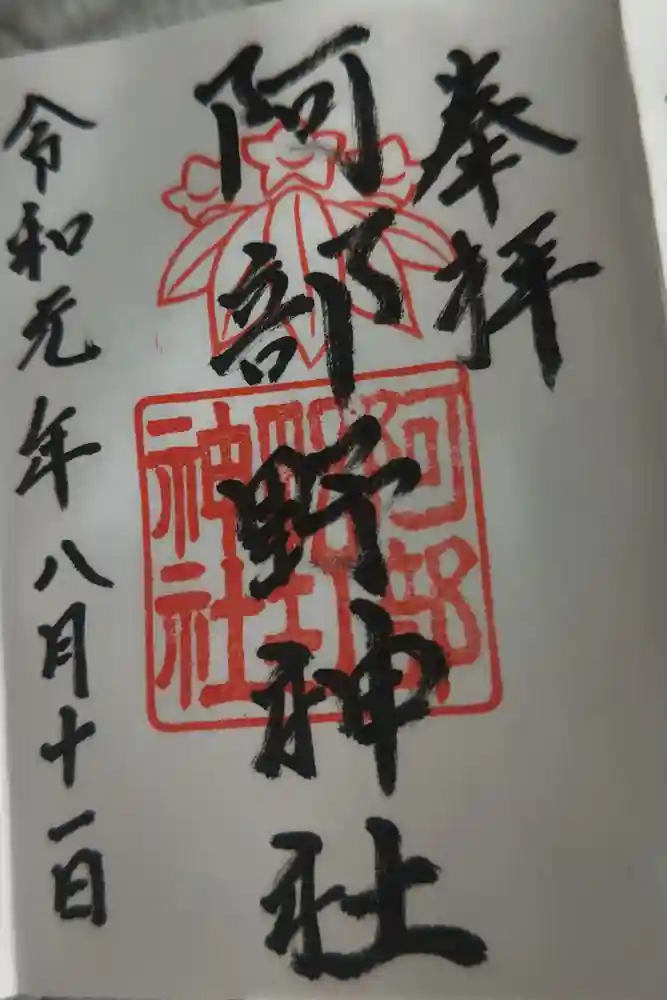 奉拝
阿部野神社
阿部
野印
神社
令和元年八月十一日